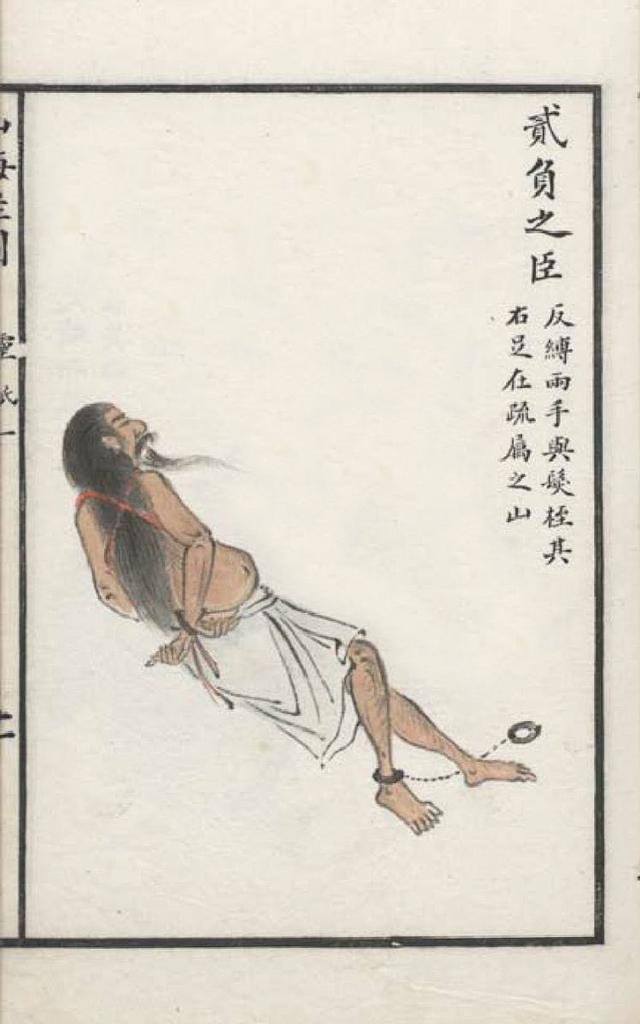 貳負之臣
反縛兩手與髮桎其
右足在疏屬之山